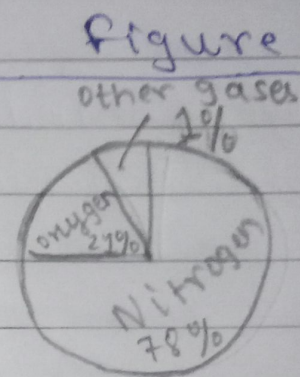 figure
other gases
1%
oxygen
21%
Nitrogen
78%